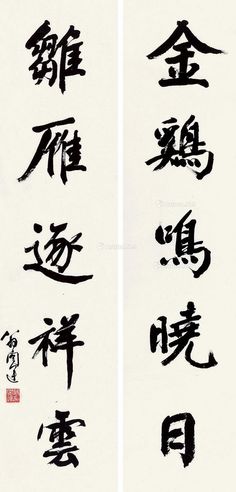 金鷄鳴曉日
雛雁逐祥雲
翁闓運